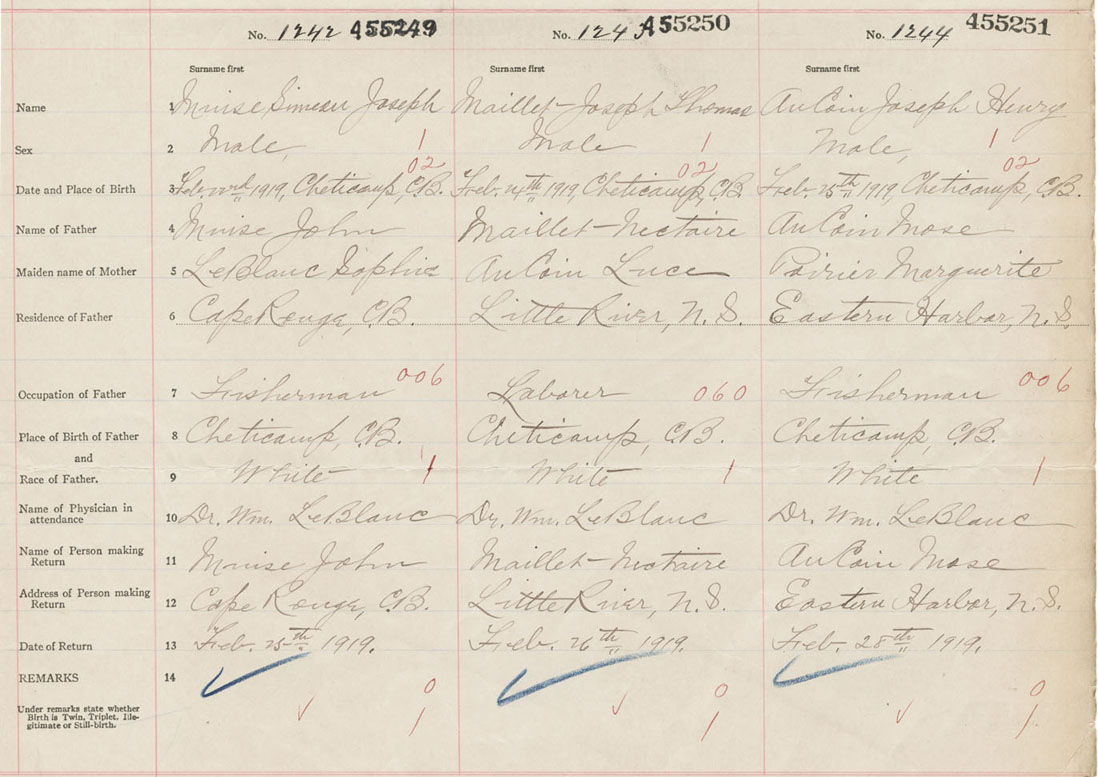 No. 1242 455249 No. 124 A55250 No. 1244 455251
Surname first Surname first Surname first
Name 1 Muise Simeau Joseph Maillet-Joseph Thomas AuCoin Joseph Henry
Sex 2 Male, 1 Male 1 Male, 1
02 02 02
Date and Place of Birth 3 Feb. 1919, Cheticamp, C.B. Feb. 24th 1919, Cheticamp, C.B. Feb. 25th 1919, Cheticamp, C.B.
Name of Father 4 Muise John Maillet-Nectaire AuCoin Mose
Maiden name of Mother 5 LeBlanc Sophie AuCoin Luce Poirier Marguerite
Residence of Father 6 Cape Rouge, C.B. Little River, N.S. Eastern Harbor, N.S.
Occupation of Father 7 Fisherman 006 Laborer 060 Fisherman 006
Place of Birth of Father 8 Cheticamp, C.B. Cheticamp, C.B. Cheticamp, C.B.
and
Race of Father. 9 White 1 White 1 White 1
Name of Physician in
attendance 10 Dr. Wm. LeBlanc Dr. Wm. LeBlanc Dr. Wm. LeBlanc
Name of Person making
Return 11 Muise John Maillet-Nectaire AuCoin Mose
Address of Person making
Return 12 Cape Rouge, C.B. Little River, N.S. Eastern Harbor, N.S.
Date of Return 13 Feb. 25th 1919. Feb. 26th 1919. Feb. 28th 1919.
REMARKS 14
0 0 0
Under remarks state whether
Birth is Twin, Triplet, Ille-
gitimate or Still-birth. 1 1 1